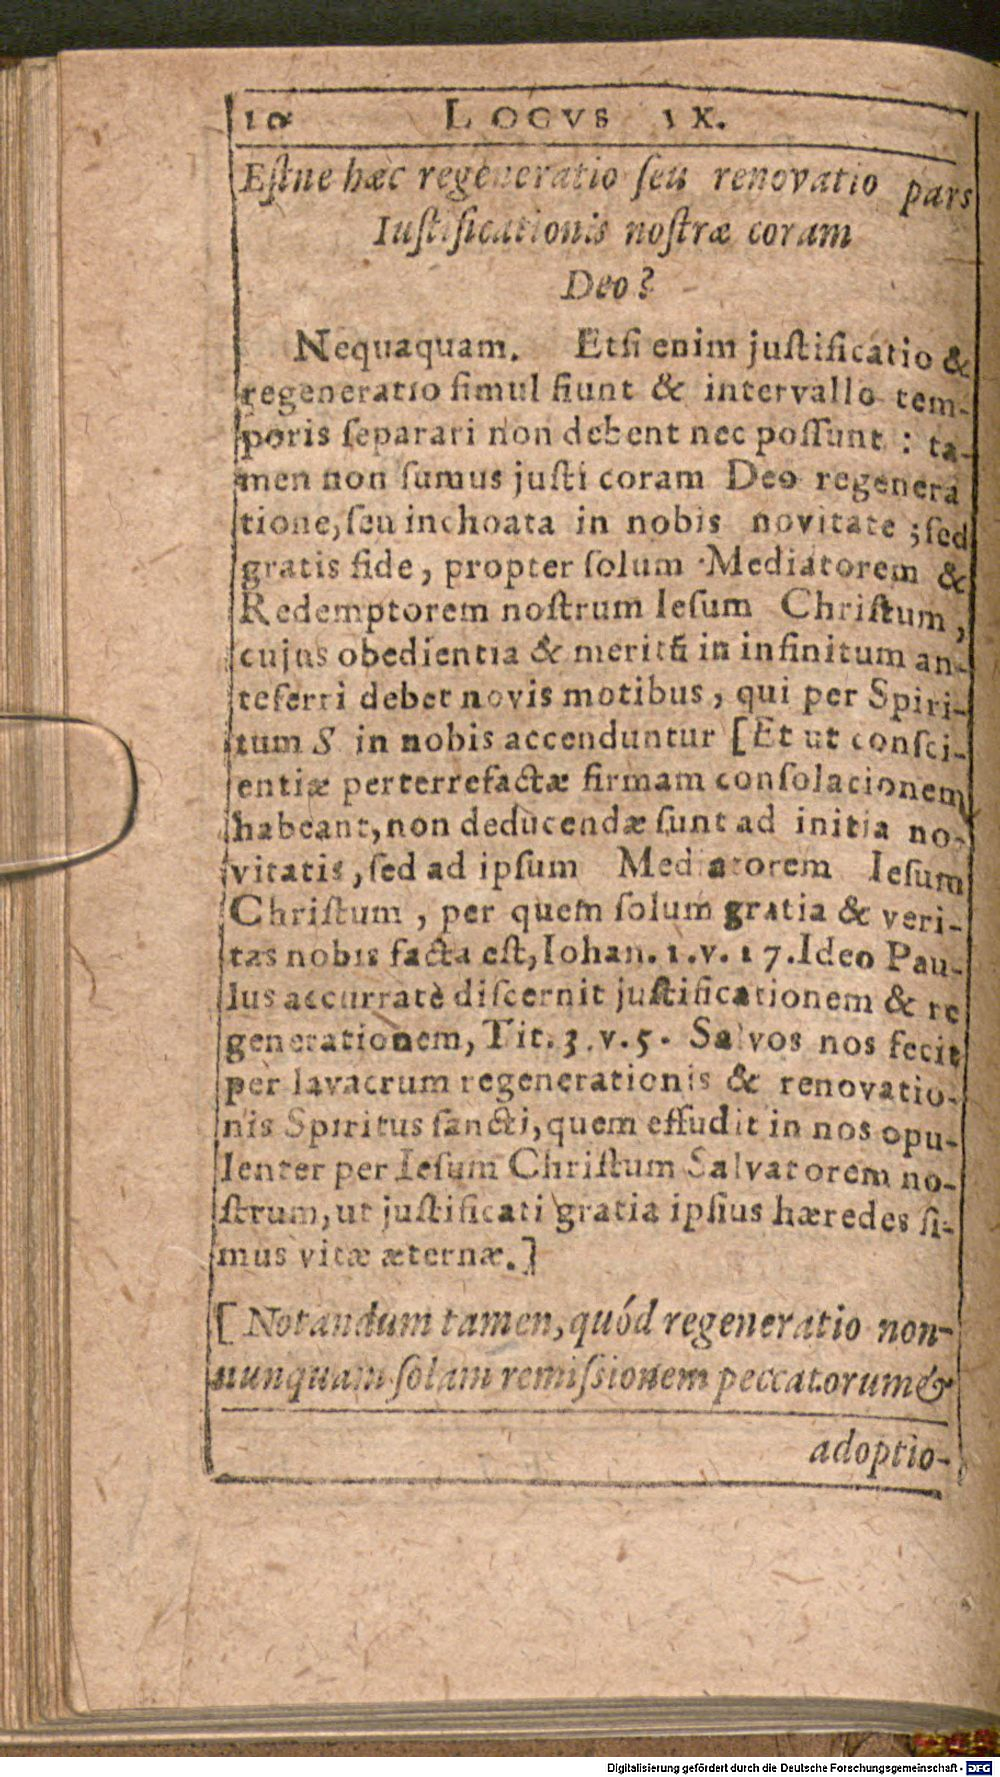 10 LOCVS IX.
Eſtne hæc regeneratio ſeu renovatio pars
Iuſtificationis noſtræ coram
Deo?
Nequaquam. Etſi enim juſtificatio &
regeneratio ſimul fiunt & intervallo tem-
poris ſeparari non debent nec poſſunt : ta-
men non ſumus juſti coram Deo regenera
tione, ſeu inchoata in nobis novitate ; ſed
gratis fide, propter ſolum Mediatorem &
Redemptorem noſtrum Ieſum Chriſtum,
cujus obedientia & meritũ in infinitum an-
teferri debet novis motibus, qui per Spiri-
tum S in nobis accenduntur [Et ut conſci-
entiæ perterrefactæ firmam conſolacionem
habeant, non deducendæ ſunt ad initia no-
vitatis, ſed ad ipſum Mediatorem Ieſum
Chriſtum, per quem ſolum gratia & veri-
tas nobis facta eſt, Iohan. 1. v. 17. Ideo Pau-
lus accurratè diſcernit juſtificationem & re
generationem, Tit. 3. v. 5. Salvos nos fecit
per lavacrum regenerationis & renovatio-
nis Spiritus ſancti, quem effudit in nos opu-
lenter per Ieſum Chriſtum Salvatorem no-
ſtrum, ut juſtificati gratia ipſius hæredes ſi-
mus vitæ æternæ.]
[Notandum tamen, quód regeneratio non-
nunquam ſolam remiſsionem peccatorum &
adoptio-
Digitalisierung gefördert durch die Deutsche Forschungsgemeinschaft - DFG